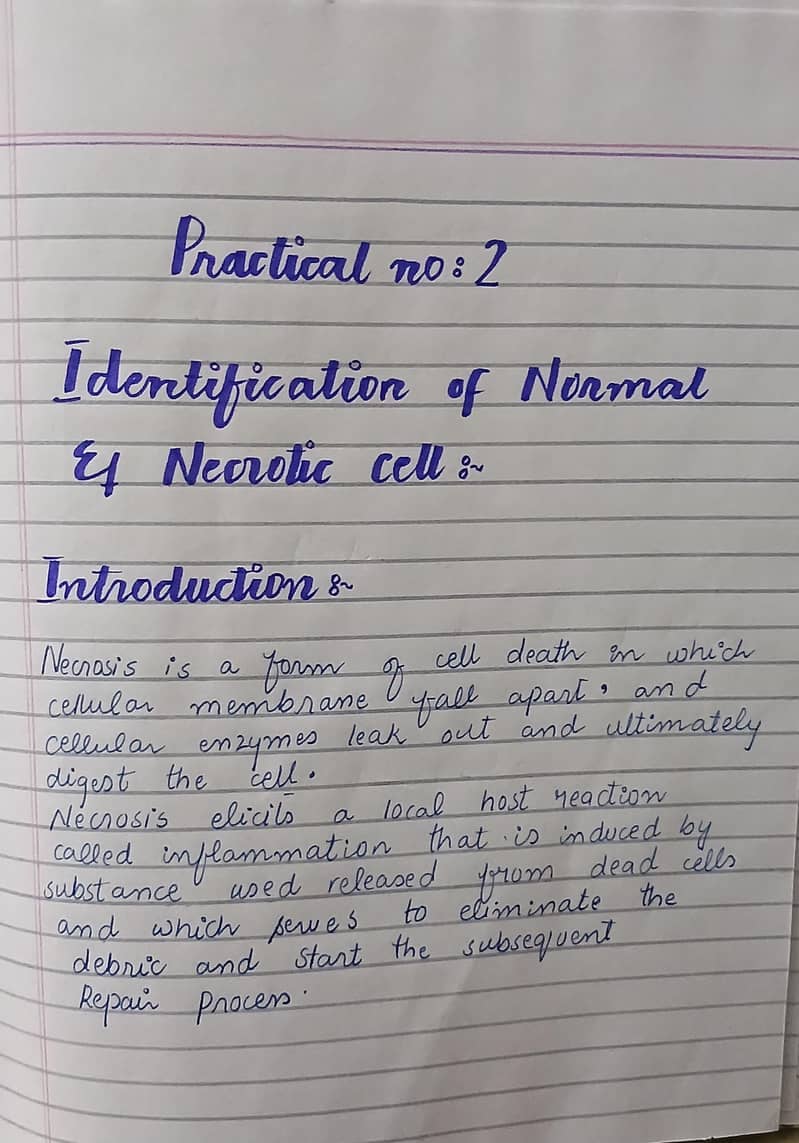 Practical no: 2
Identification of Normal
& Necrotic cell :~
Introduction :~
Necrosis is a form of cell death in which
cellular membrane fall apart, and
cellular enzymes leak out and ultimately
digest the cell.
Necrosis elicits a local host reaction
called inflammation that is induced by
substance used released from dead cells
and which serves to eliminate the
debric and start the subsequent
Repair Process.